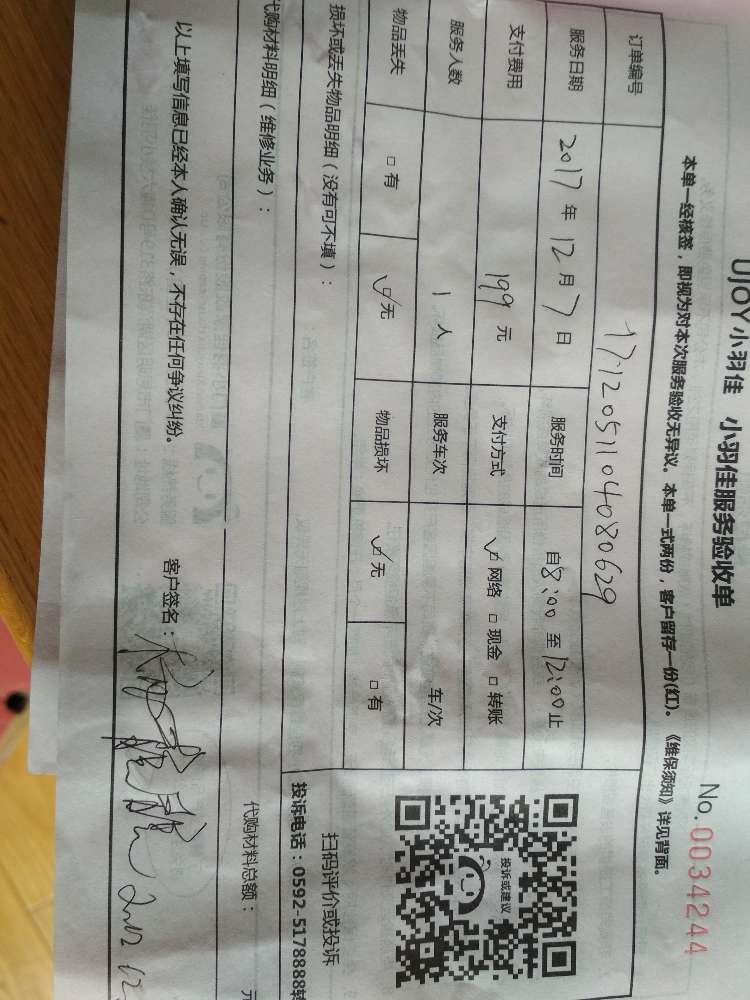 UJOY小羽佳 小羽佳服务验收单
No.0034244
本单一经核签，即视为对本次服务验收无异议。本单一式两份，客户留存一份(红)。《维保须知》详见背面。
订单编号 1712051104080629
服务日期 2017年12月7日 服务时间 自8:00至12:00止
支付费用 199元 支付方式 ☑网络 □现金 □转账
服务人数 1人 服务车次 车/次
物品丢失 □有 ☑无 物品损坏 ☑无 □有
损坏或丢失物品明细（没有可不填）：
投诉或建议
扫码评价或投诉
投诉电话：0592-5178888转
代购材料明细（维修业务）：
代购材料总额： 元
以上填写信息已经本人确认无误，不存在任何争议纠纷。 客户签名：